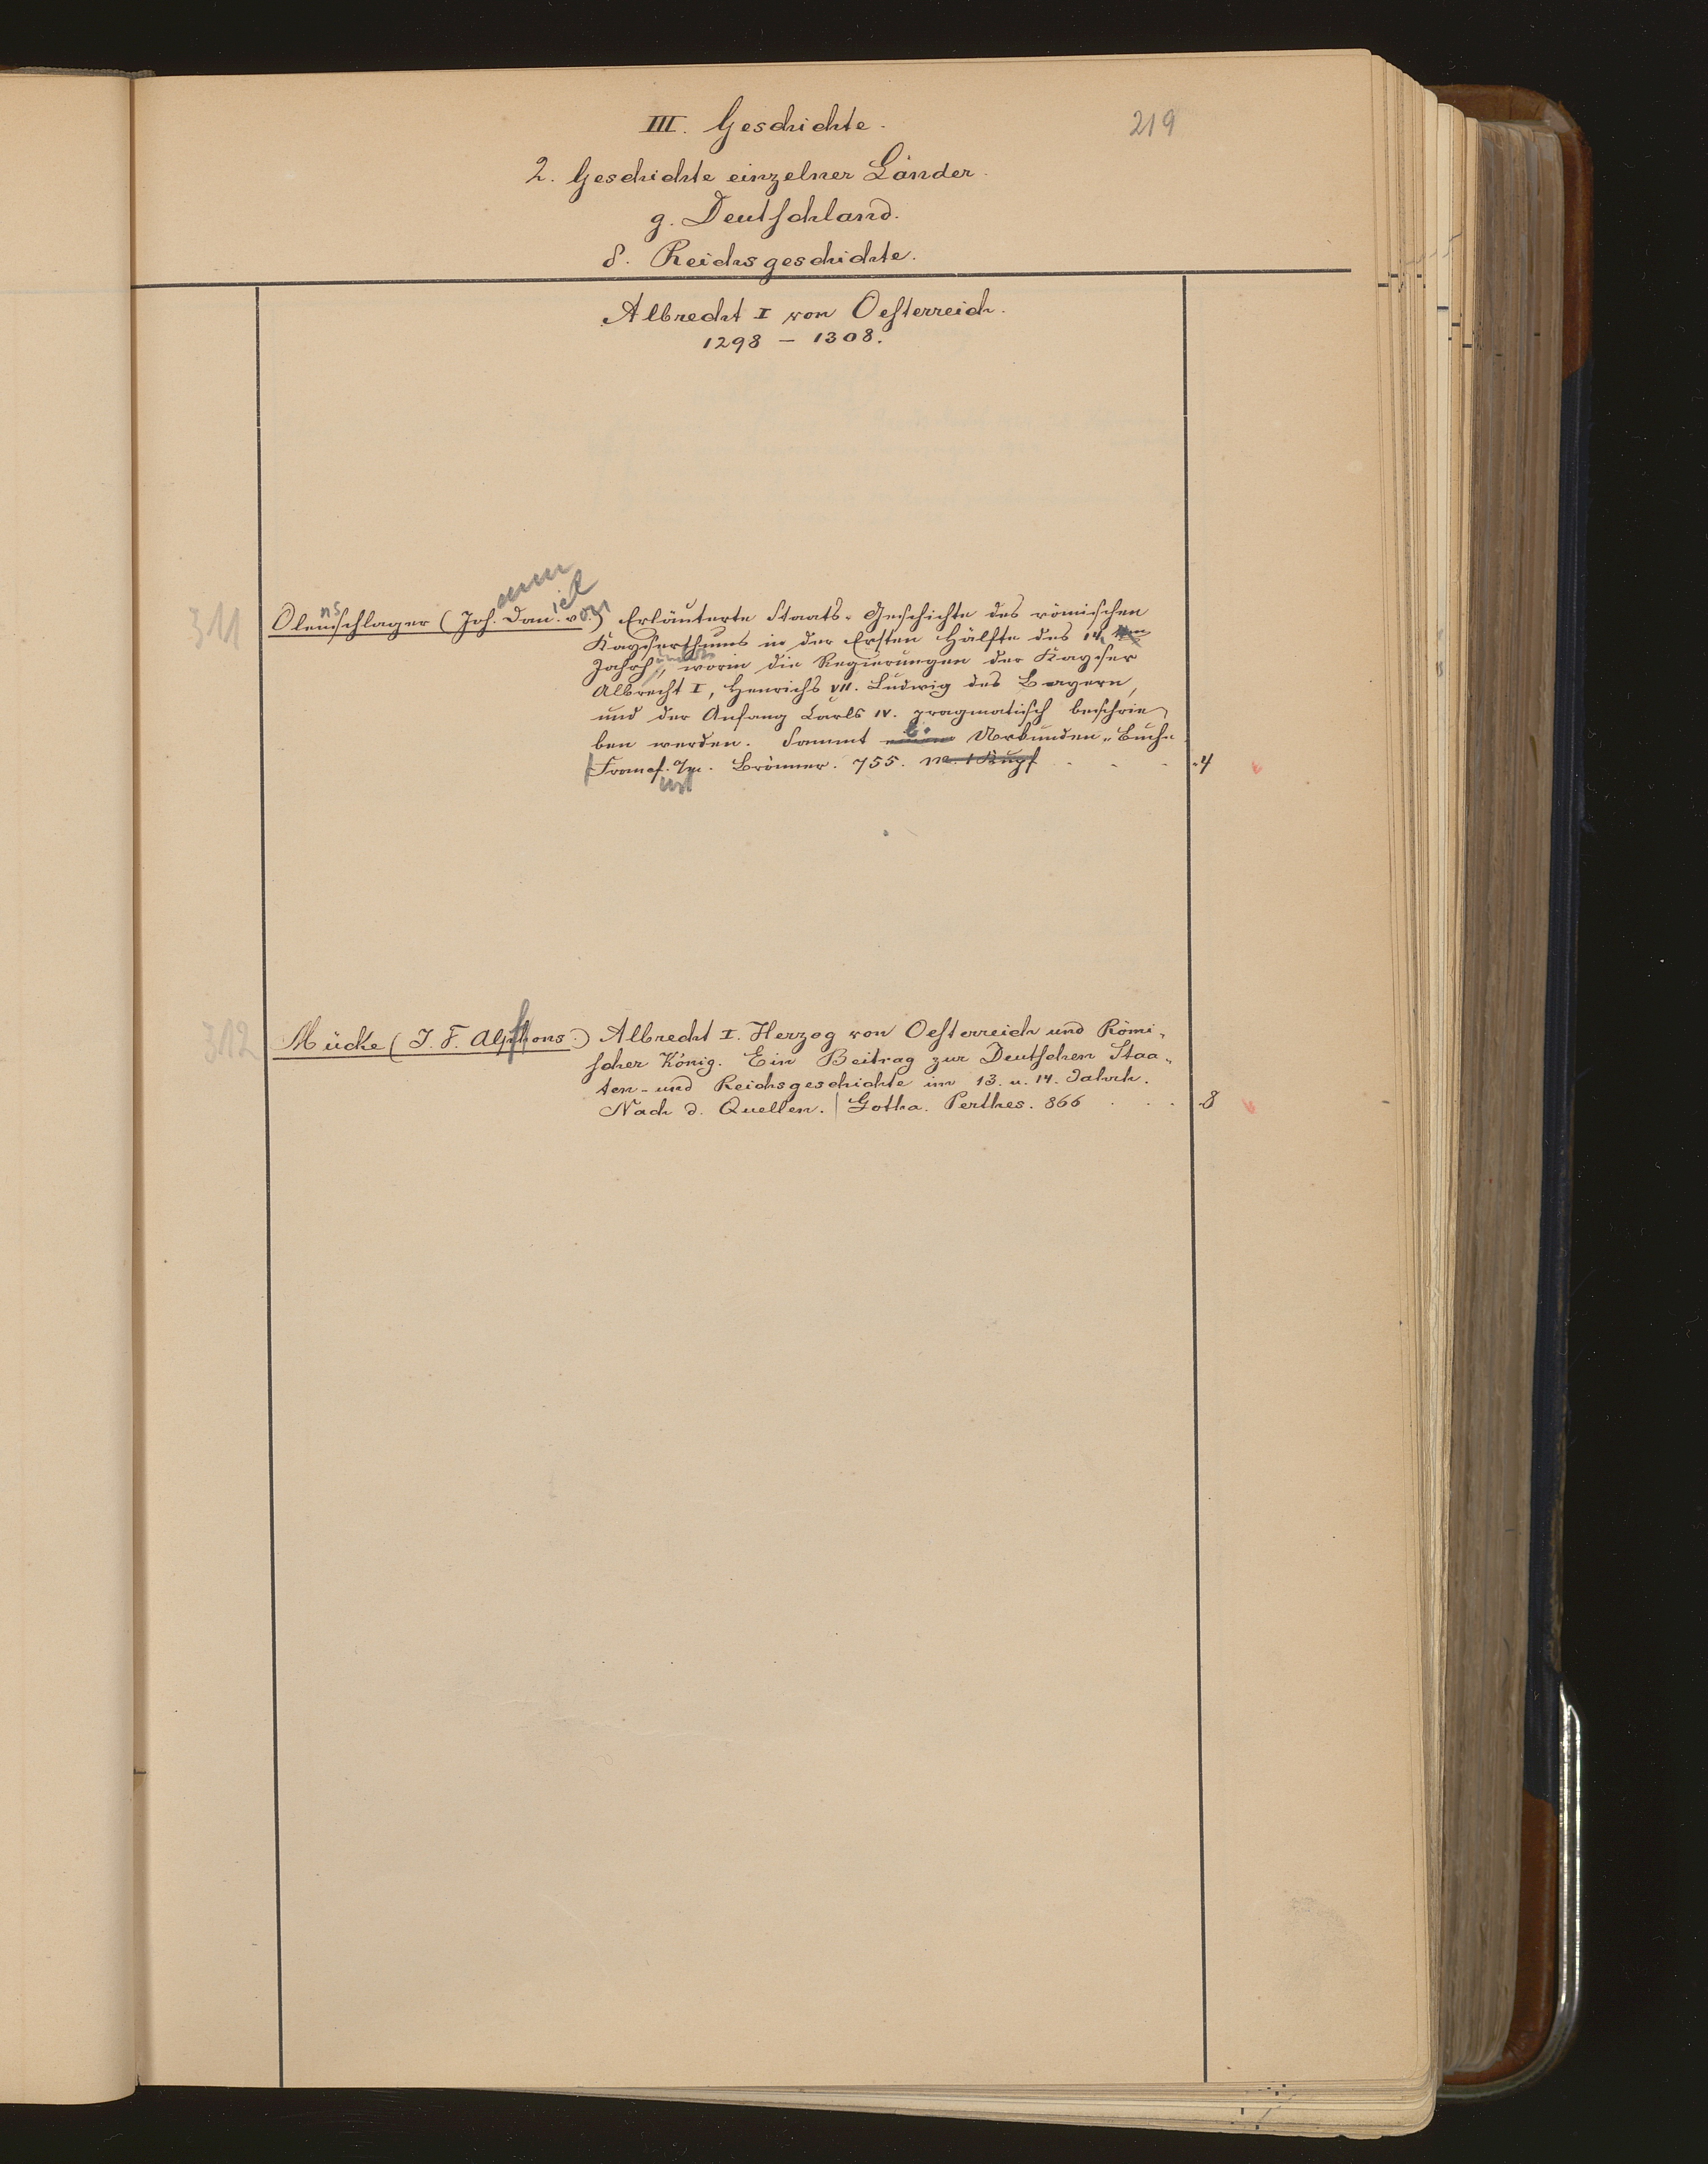 219
III. Geschichte.
2. Geschichte einzelner Länder.
g. Deutschland.
δ. Reichsgeschichte.
Albrecht I von Oesterreich.
1298 – 1308.
311
Olenschlager (Joh. Dan. von) Erläuterte Staats-Geschichte des römischen
Kayserthums in der Ersten Hälfte des 14.
Jahrh, worin die Regierungen der Kayser
Albrecht I, Henrichs VII. Ludwig des Bayern,
und der Anfang Carls IV. pragmatisch beschrie-
ben werden. Sammt Urkunden-Buche
Francf. a/m. Brönner. 755. m. 1 Kupf . . . 4
312
Mücke (J. F. Alphons.) Albrecht I. Herzog von Oesterreich und Römi-
scher König. Ein Beitrag zur Deutschen Staa-
ten- und Reichsgeschichte im 13. u. 14. Jahrh.
Nach d. Quellen. | Gotha. Perthes. 866 . . . 8